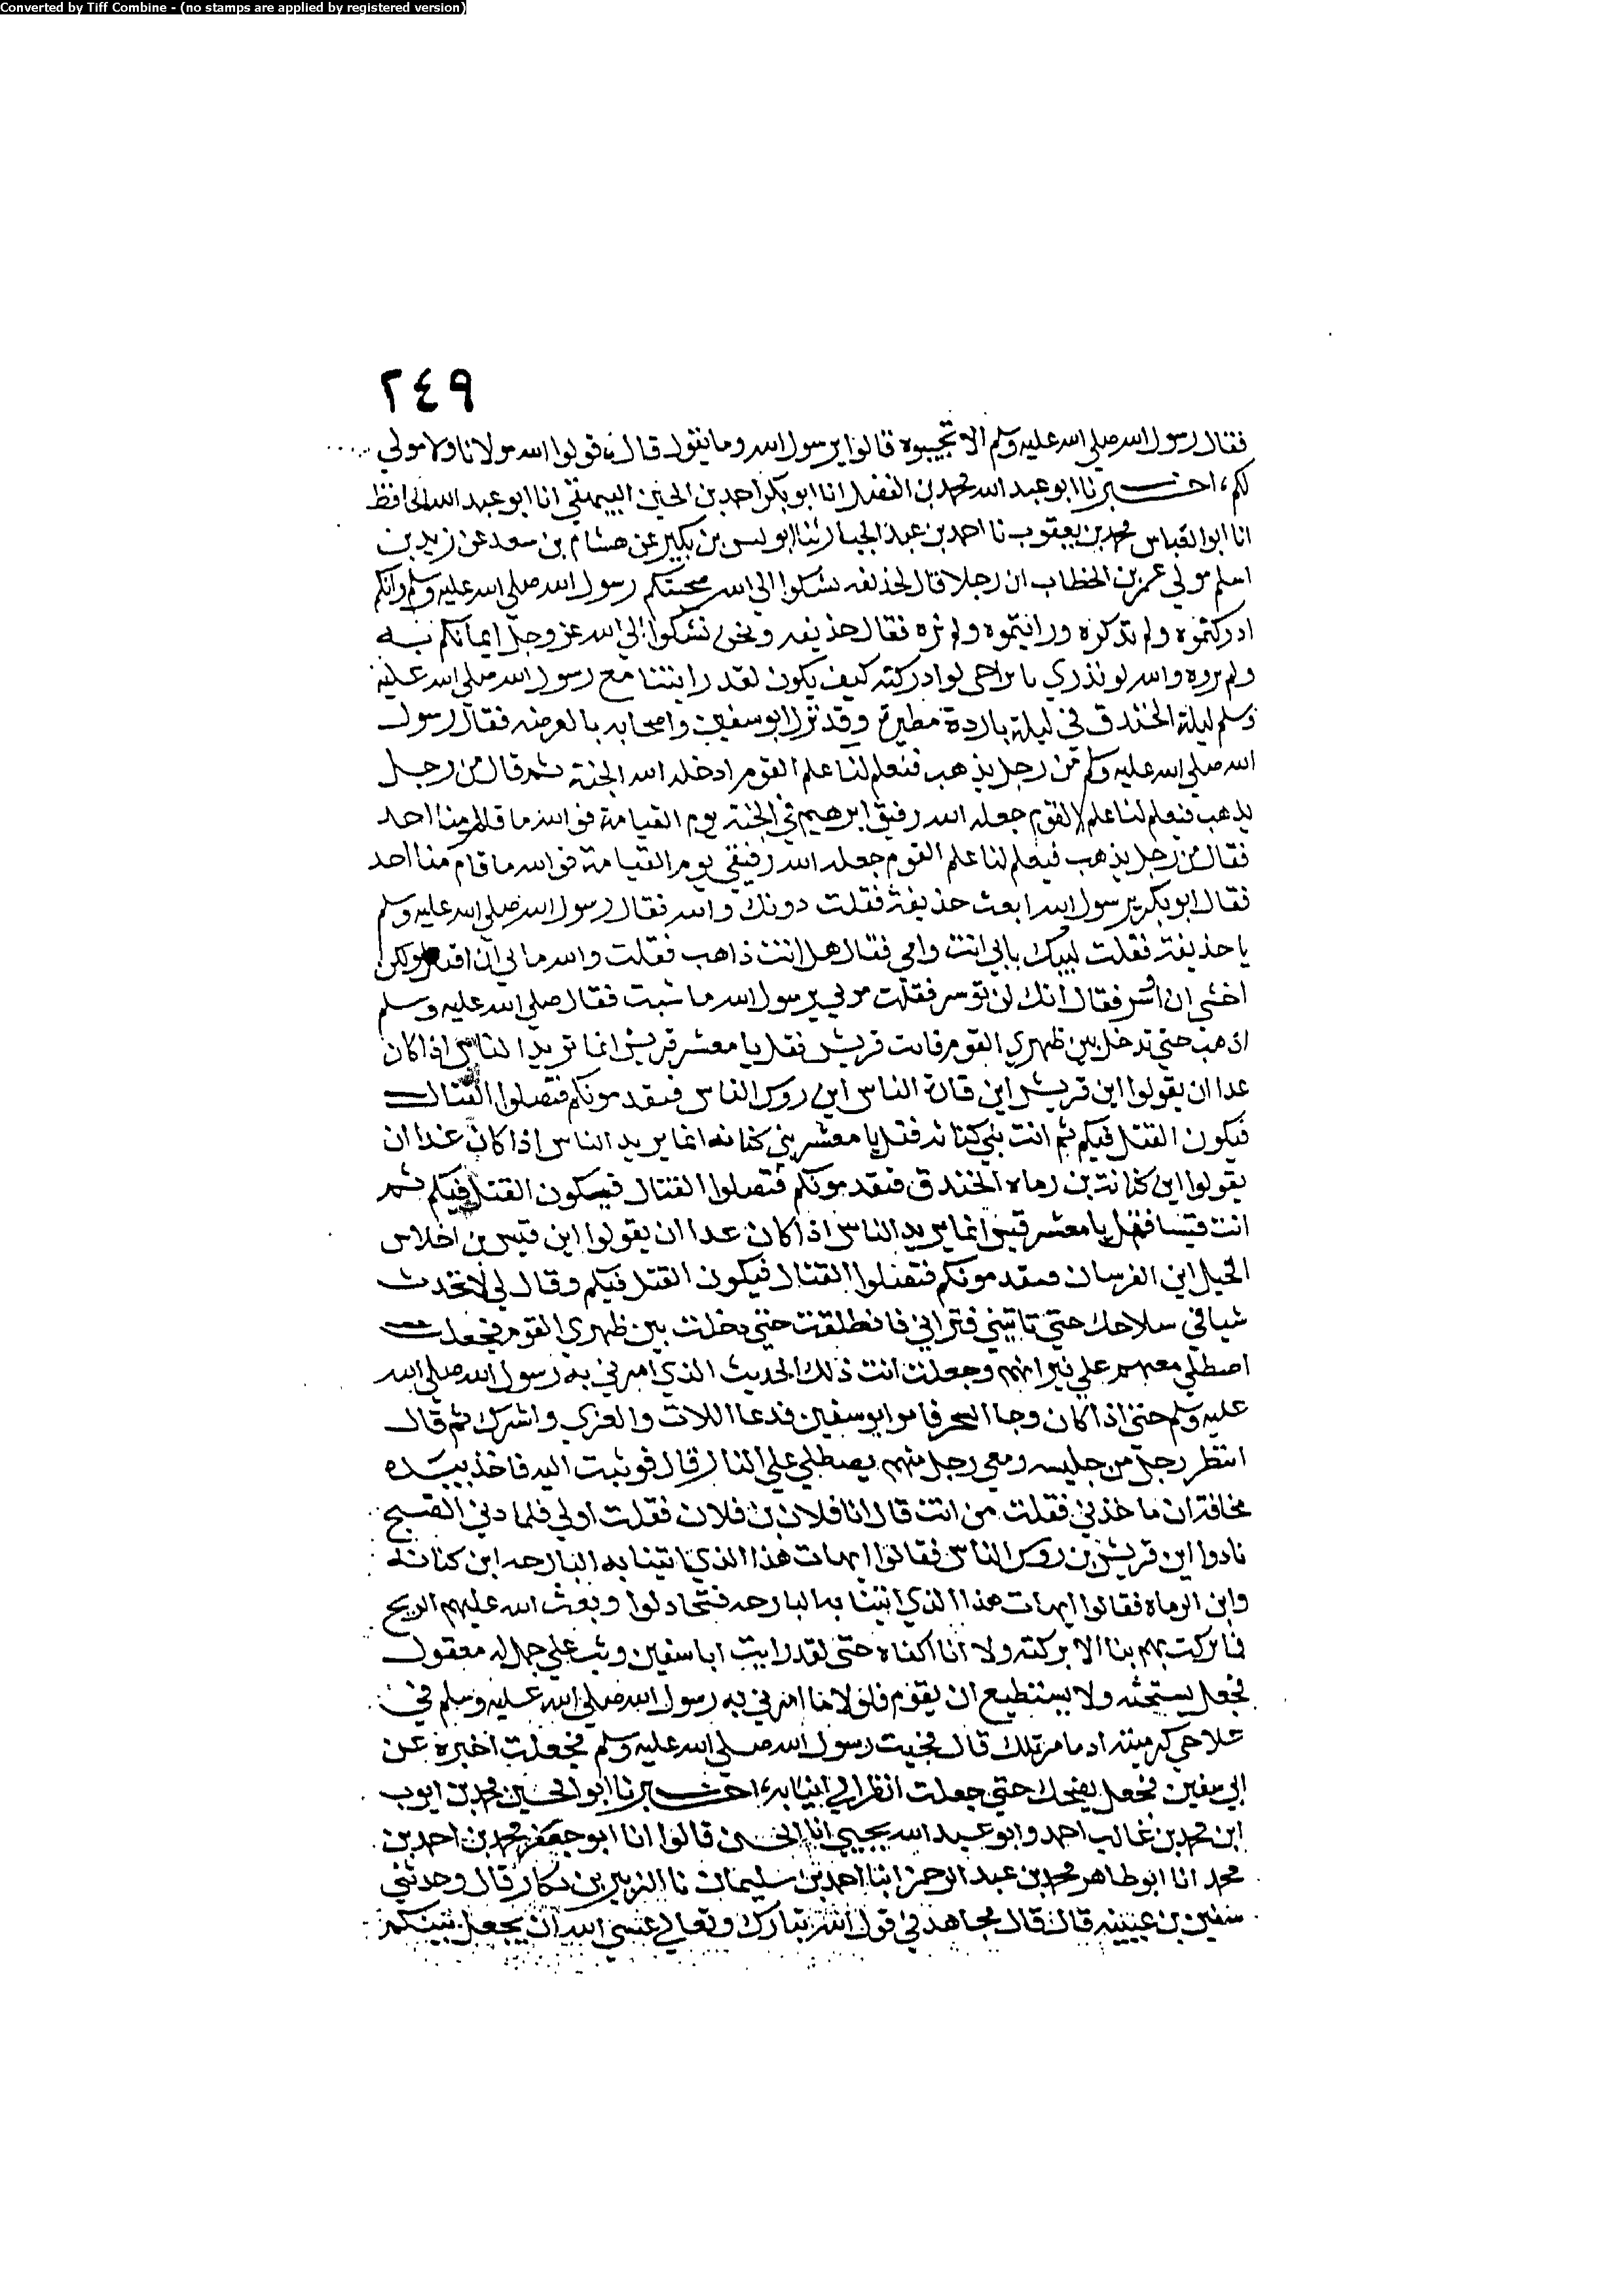 Converted by Tiff Combine - (no stamps are applied by registered version)
٢٤٩
فقال رسول الله صلي الله عليه وسلم الا تجيبوه قالوا يرسول الله وما نقول قال قولوا الله مولانا ولا مولي
لكم، اخبرنا ابو عبد الله محمد بن الفضل انا ابو بكر احمد بن الحسين البيهقي انا ابو عبد الله الحافظ
انا ابو العباس محمد بن يعقوب نا احمد بن عبد الجبار نا يونس بن بكير عن هشام بن سعد عن زيد بن
اسلم مولي عمر بن الخطاب ان رجلا قال لحذيفه نشكوا الي الله صحبتكم رسول الله صلي الله عليه وسلم وانكم
ادركتموه ولم ندركه ورايتموه ولم نره فقال حذيفه ونحن نشكوا الي الله عز وجل ايمانكم به
ولم تروه والله لو تدري يا بن اخي لو ادركته كيف يكون لقد رايتنا مع رسول الله صلي الله عليه
وسلم ليلة الخندق في ليلة باردة مطيرة وقد نزل ابو سفين واصحابه بالعرصه فقال رسول
الله صلي الله عليه وسلم من رجل يذهب فيعلم لنا علم القوم ادخله الله الجنة ثم قال من رجل
يذهب فيعلم لنا علم القوم جعله الله رفيق ابرهيم في الجنة يوم القيامة فوالله ما قام منا احد
فقال من رجل يذهب فيعلم لنا علم القوم جعله الله رفيقي يوم القيامة فوالله ما قام منا احد
فقال ابو بكر يرسول الله ابعث حذيفة فقلت دونك والله فقال رسول الله صلي الله عليه وسلم
يا حذيفة فقلت لبيك بابي انت وامي فقال هل انت ذاهب فقلت والله ما بي ان اقتل ولكن
اخشي ان اوسر فقال انك لن توسر فقلت مرني يرسول الله ما شيت فقال صلي الله عليه وسلم
اذهب حتي تدخل بين ظهري القوم فات قريش فقل يا معشر قريش انما تريد الناس اذا كان
غدا ان يقولوا اين قريش اين قادة الناس اين روس الناس فيقدمونكم فتصلوا القتال
فيكون القتل فيكم ثم ائت بني كنانة فقل يا معشر بني كنانه انما يريد الناس اذا كان غدا ان
يقولوا اين كنانة بن رماه الخندق فيقدمونكم فتصلوا القتال فيكون القتل فيكم ثم
ائت قيسا فقل يا معشر قيس انما يريد الناس اذا كان غدا ان يقولوا اين قيس بن اخلاس
الخيل اين الفرسان فيقدمونكم فتصلوا القتال فيكون القتل فيكم وقال لي لا تحدث
شيا في سلاحك حتي تاتيني فتراني فانطلقت حتي دخلت بين ظهري القوم فجعلت
اصطلي معهم علي نيرانهم وجعلت ابث ذلك الحديث الذي امرني به رسول الله صلي الله
عليه وسلم حتي اذا كان وجا السحر قام ابو سفين فدعا اللات والعزي واشرك ثم قال
انتظر رجل من جليسه ومعي رجل منهم يصطلي علي النار قال فوثبت اليه فاخذ بيده
مخافة ان ياخذني فقلت من انت قال انا فلان بن فلان فقلت اولي فلما دني الصبح
نادوا اين قريش بن روس الناس فقالوا ايهات هذا الذي اتينا به البارحه اين كنانه
واين الرماه فقالوا ايهات هذا الذي اتينا به البارحه فتخاذلوا وبعث الله عليهم الريح
فما تركت لهم بنا الا بركته ولا انا الا كفاه حتي لقد رايت ابا سفين وثب علي جمل له معقول
فجعل يستحثه ولا يستطيع ان يقوم فلولا ما امرني به رسول الله صلي الله عليه وسلم في
قال فجيت رسول الله صلي الله عليه وسلم فجعلت اخبره عن
ابي سفين فجعل يضحك حتي جعلت انظر الي انيابه، اخبرنا ابو الحسين محمد بن ايوب
ابن محمد بن غالب احمد وابو عبد الله يحيي انا الحسن قالوا انا ابو جعفر محمد بن احمد بن
محمد انا ابو طاهر محمد بن عبد الرحمن انبا احمد بن سليمان نا الزبير بن بكار قال وحدثني
سفين بن عيينه قال قال مجاهد في قول الله تبارك وتعالي عسي الله ان يجعل بينكم